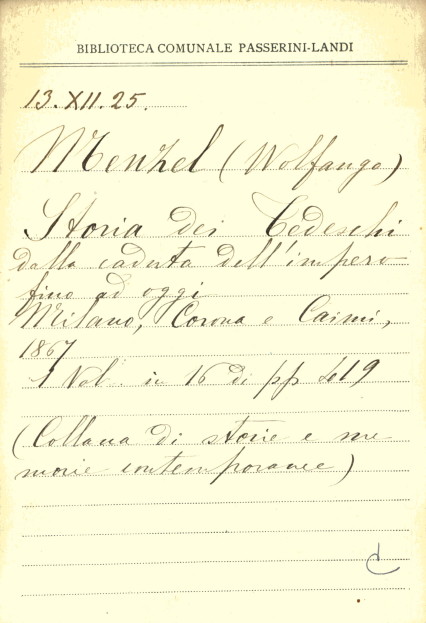 BIBLIOTECA COMUNALE PASSERINI-LANDI
13.XII.25.
Menzel (Wolfango)
Storia dei Tedeschi
dalla caduta dell'impero
fino ad oggi
Milano, Corona e Caimi,
1867
1 Vol. in 16 di pp 419
(Collana di storie e me
morie contemporanee)